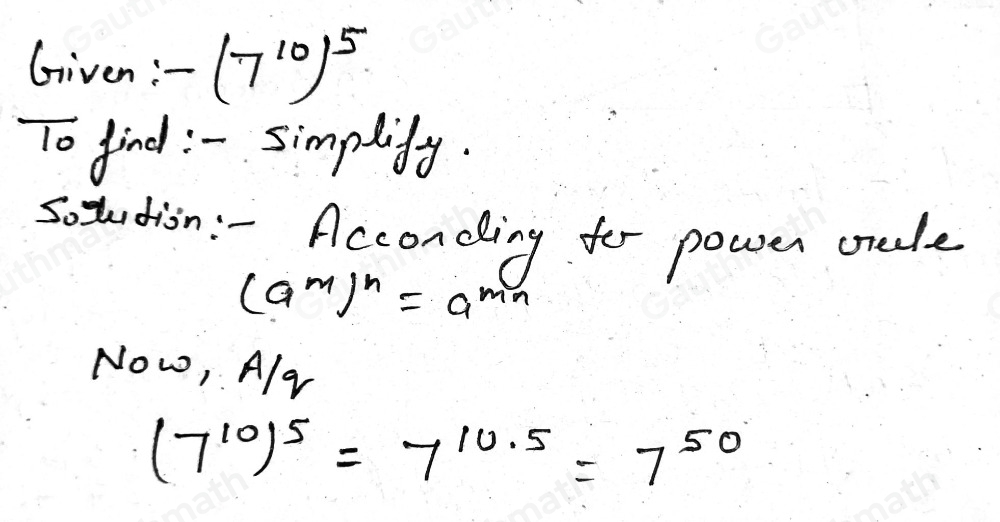 Given :- (7^10)^5
To find :- Simplify.
Solution :- According to power rule
(a^m)^n = a^mn
Now, A/q
(7^10)^5 = 7^10.5 = 7^50